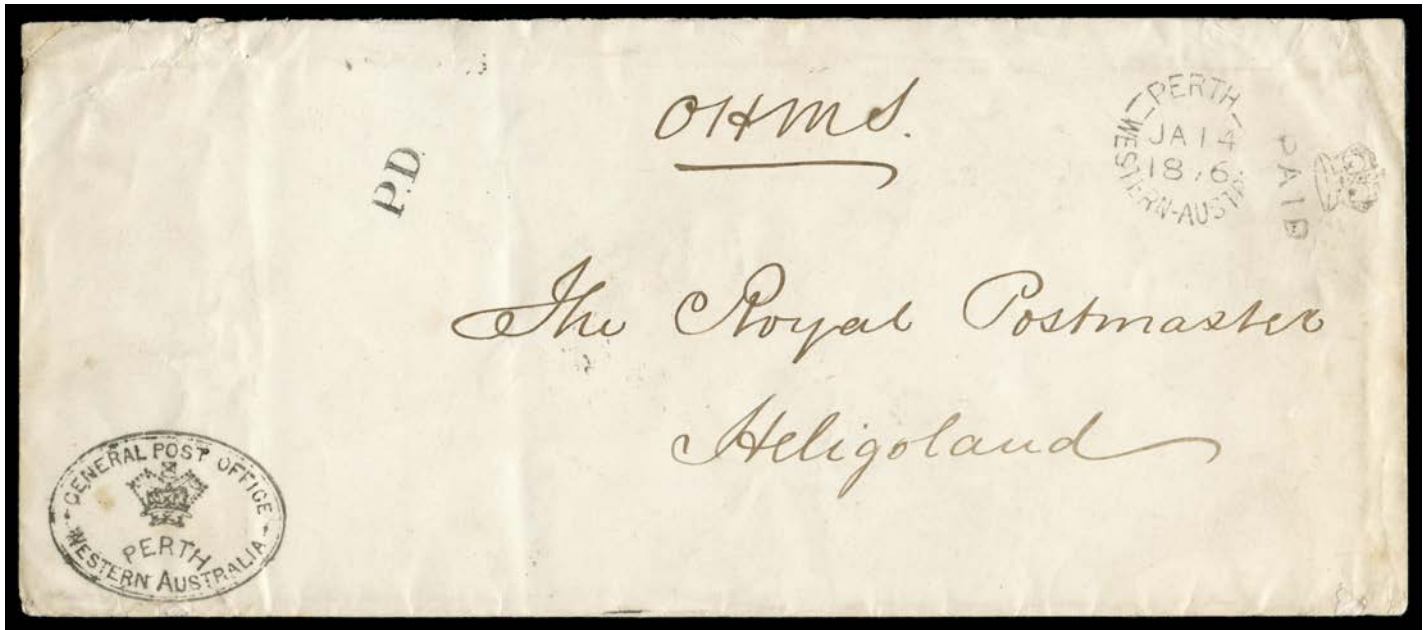 OHMS.
P.D.
PERTH
JA 14
WESTERN-AUSTRA
PAID
The Royal Postmaster
Heligoland
GENERAL POST OFFICE
PERTH
WESTERN AUSTRALIA